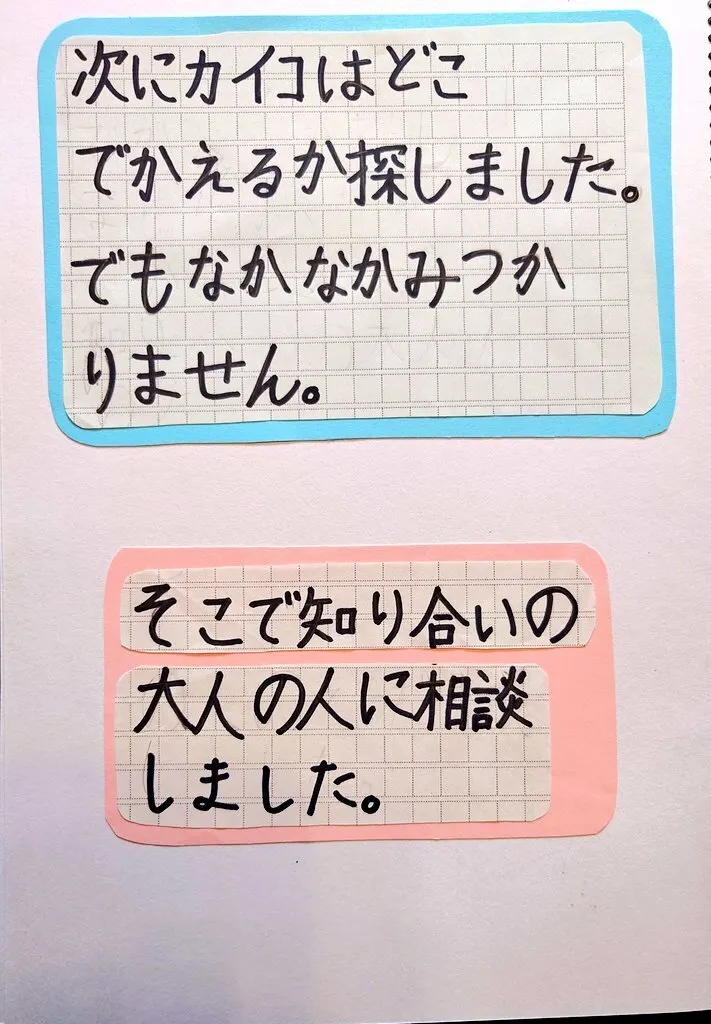 次にカイコはどこ
でかえるか探しました。
でもなかなかみつか
りません。
そこで知り合いの
大人の人に相談
しました。